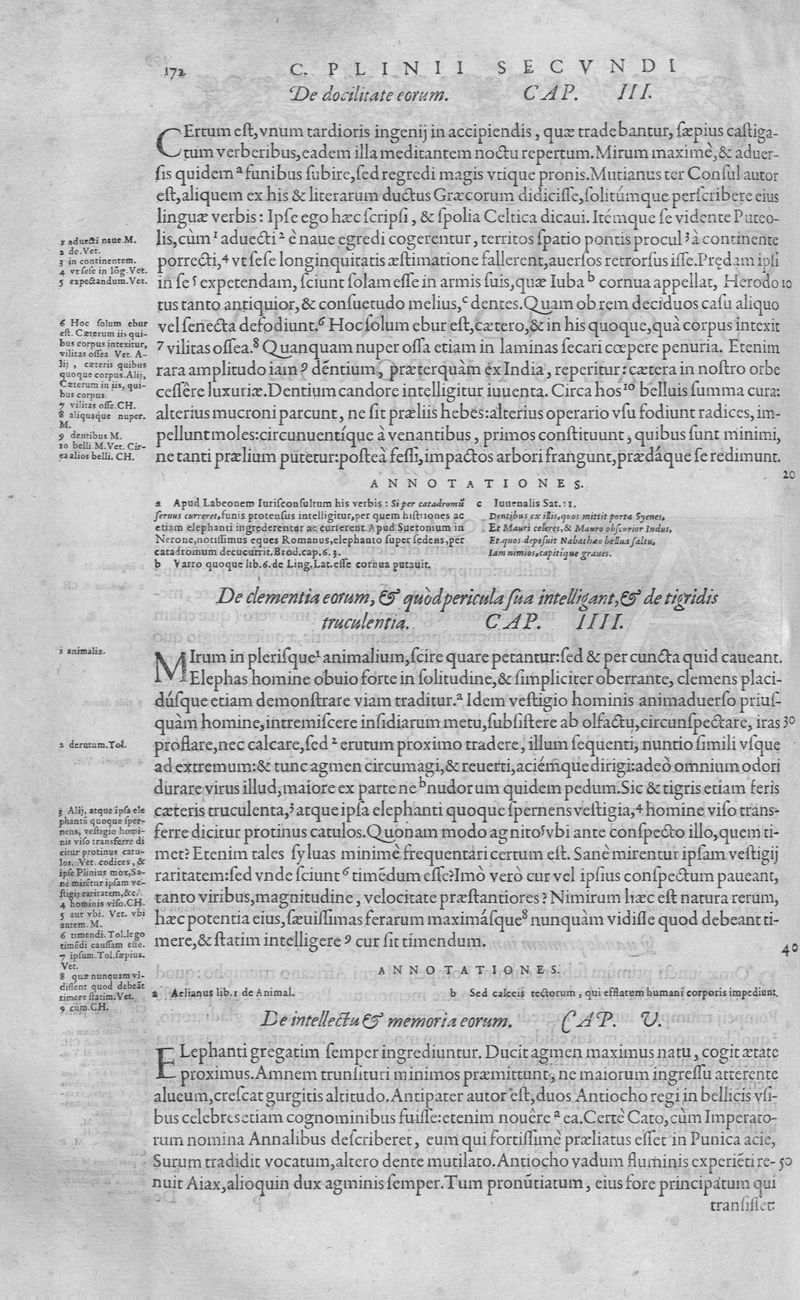 172
C. PLINII SECVNDI
De docilitate eorum. CAP. III.
CErtum eſt,vnum tardioris ingenij in accipiendis, quæ tradebantur, ſæpius caſtiga-
tum verberibus,eadem illa meditantem noctu repertum.Mirum maximè,& aduer-
ſis quidem ª funibus ſubire,ſed regredi magis vtique pronis.Mutianus ter Conſul autor
eſt,aliquem ex his & literarum ductus Græcorum didiciſſe,ſolitúmque perſcribere eius
linguæ verbis: Ipſe ego hæc ſcripſi, & ſpolia Celtica dicaui. Itémque ſe vidente Puteo-
lis,cùm ¹ aduecti ² è naue egredi cogerentur, territos ſpatio pontis procul ³ à continente
porrecti,⁴ vt ſeſe longinquitatis æſtimatione fallerent,auerſos retrorſus iſſe.Prędam ipſi
in ſe ⁵ expetendam, ſciunt ſolam eſſe in armis ſuis,quæ Iuba ᵇ cornua appellat, Herodo 10
tus tanto antiquior,& conſuetudo melius,ᶜ dentes.Quam ob rem deciduos caſu aliquo
vel ſenecta defodiunt.⁶ Hoc ſolum ebur eſt,cætero,& in his quoque,quà corpus intexit
⁷ vilitas oſſea.⁸ Quanquam nuper oſſa etiam in laminas ſecari cœpere penuria. Etenim
rara amplitudo iam ⁹ dentium, præterquàm ex India, reperitur: cætera in noſtro orbe
ceſſêre luxuriæ.Dentium candore intelligitur iuuenta. Circa hos ¹⁰ belluis ſumma cura:
alterius mucroni parcunt, ne ſit præliis hebes:alterius operario vſu fodiunt radices, im-
pellunt moles:circunuentíque à venantibus, primos conſtituunt, quibus ſunt minimi,
ne tanti prælium putetur:poſteà feſſi,impactos arbori frangunt,prædáque ſe redimunt.
1 aduecti naue M.
2 de.Vet.
3 in continentem.
4 vt ſeſe in lōg.Vet.
5 expectandum.Vet.
6 Hoc ſolum ebur
eſt. Cæterum iis qui-
bus corpus intexitur,
vilitas oſſea Vet. A-
lij, cæteris quibus
quoque corpus.Alij,
Cæterum in iis, qui-
bus corpus.
7 vilitas oſſe.CH.
8 aliquaque nuper.
M.
9 dentibus M.
10 belli M.Vet. Cir-
ca alios belli. CH.
20
ANNOTATIONES.
a Apud Labeonem Iuriſconſultum his verbis: Si per catadromū
ſeruus curreret,funis protenſus intelligitur,per quem hiſtriones ac
etiam elephanti ingrederentur ac currerent.Apud Suetonium in
Nerone,notiſſimus eques Romanus,elephanto ſuper ſedens,per
catadromum decucurrit.Brod.cap.6.3.
b Varro quoque lib.6.de Ling.Lat.eſſe cornua putauit.
c Iuuenalis Sat.11.
Dentibus ex illis,quos mittit porta Syenes,
Et Mauri celeres,& Mauro obſcurior Indus,
Et quos depoſuit Nabathæo bellua ſaltu,
Iam nimios,capitique graues.
De clementia eorum, & quòd pericula ſua intelligant,& de tigridis
truculentia. CAP. IIII.
MIrum in pleriſque ¹ animalium,ſcire quare petantur:ſed & per cuncta quid caueant.
Elephas homine obuio forte in ſolitudine,& ſimpliciter oberrante, clemens placi-
dúſque etiam demonſtrare viam traditur.ª Idem veſtigio hominis animaduerſo priuſ-
quàm homine,intremiſcere inſidiarum metu,ſubſiſtere ab olfactu,circunſpectare, iras 30
proflare,nec calcare,ſed ² erutum proximo tradere, illum ſequenti, nuntio ſimili vſque
ad extremum:& tunc agmen circumagi,& reuerti,aciémque dirigi:adeò omnium odori
durare virus illud,maiore ex parte ne ᵇ nudorum quidem pedum.Sic & tigris etiam feris
cæteris truculenta,³ atque ipſa elephanti quoque ſpernens veſtigia,⁴ homine viſo trans-
ferre dicitur protinus catulos.Quonam modo agnito ⁵ vbi ante conſpecto illo,quem ti-
met? Etenim tales ſyluas minimè frequentari certum eſt. Sanè mirentur ipſam veſtigij
raritatem:ſed vnde ſciunt ⁶ timēdum eſſe?Imò verò cur vel ipſius conſpectum paueant,
tanto viribus,magnitudine, velocitate præſtantiores? Nimirum hæc eſt natura rerum,
hæc potentia eius,ſæuiſſimas ferarum maximáſque ⁸ nunquàm vidiſſe quod debeant ti-
mere,& ſtatim intelligere ⁹ cur ſit timendum.
1 animalia.
2 derutum.Tol.
3 Alij, atque ipſa ele
phantū quoque ſper-
nens, veſtigia homi-
nis viſo transferre di
citur protinus catu-
los. Vet. codices, &
ipſe Plinius mox,Sa-
nè mirētur ipſam ve-
ſtigij raritatem,&c.
4 hominis viſo.CH.
5 aut vbi. Vet. vbi
autem. M.
6 timendi. Tol.lego
timēdi cauſſam eſſe.
7 ipſum.Tol.ſæpius.
Vet.
8 quæ nunquam vi-
diſſent quod debeāt
timere ſtatim.Vet.
9 cùm.CH.
40
ANNOTATIONES.
a Aelianus lib.1 de Animal.
b Sed calceis tectorum, qui efflatum humani corporis impediunt.
De intellectu & memoria eorum. CAP. V.
ELephanti gregatim ſemper ingrediuntur. Ducit agmen maximus natu, cogit ætate
proximus.Amnem tranſituri minimos præmittunt, ne maiorum ingreſſu atterente
alueum,creſcat gurgitis altitudo.Antipater autor eſt,duos Antiocho regi in bellicis vſi-
bus celebres etiam cognominibus fuiſſe:etenim nouêre ª ea.Certè Cato,cùm Imperato-
rum nomina Annalibus deſcriberet, eum qui fortiſſimè præliatus eſſet in Punica acie,
Surum tradidit vocatum,altero dente mutilato.Antiocho vadum fluminis experiēti re- 50
nuit Aiax,alioquin dux agminis ſemper.Tum pronūtiatum, eius fore principatum qui
tranſiſſet: